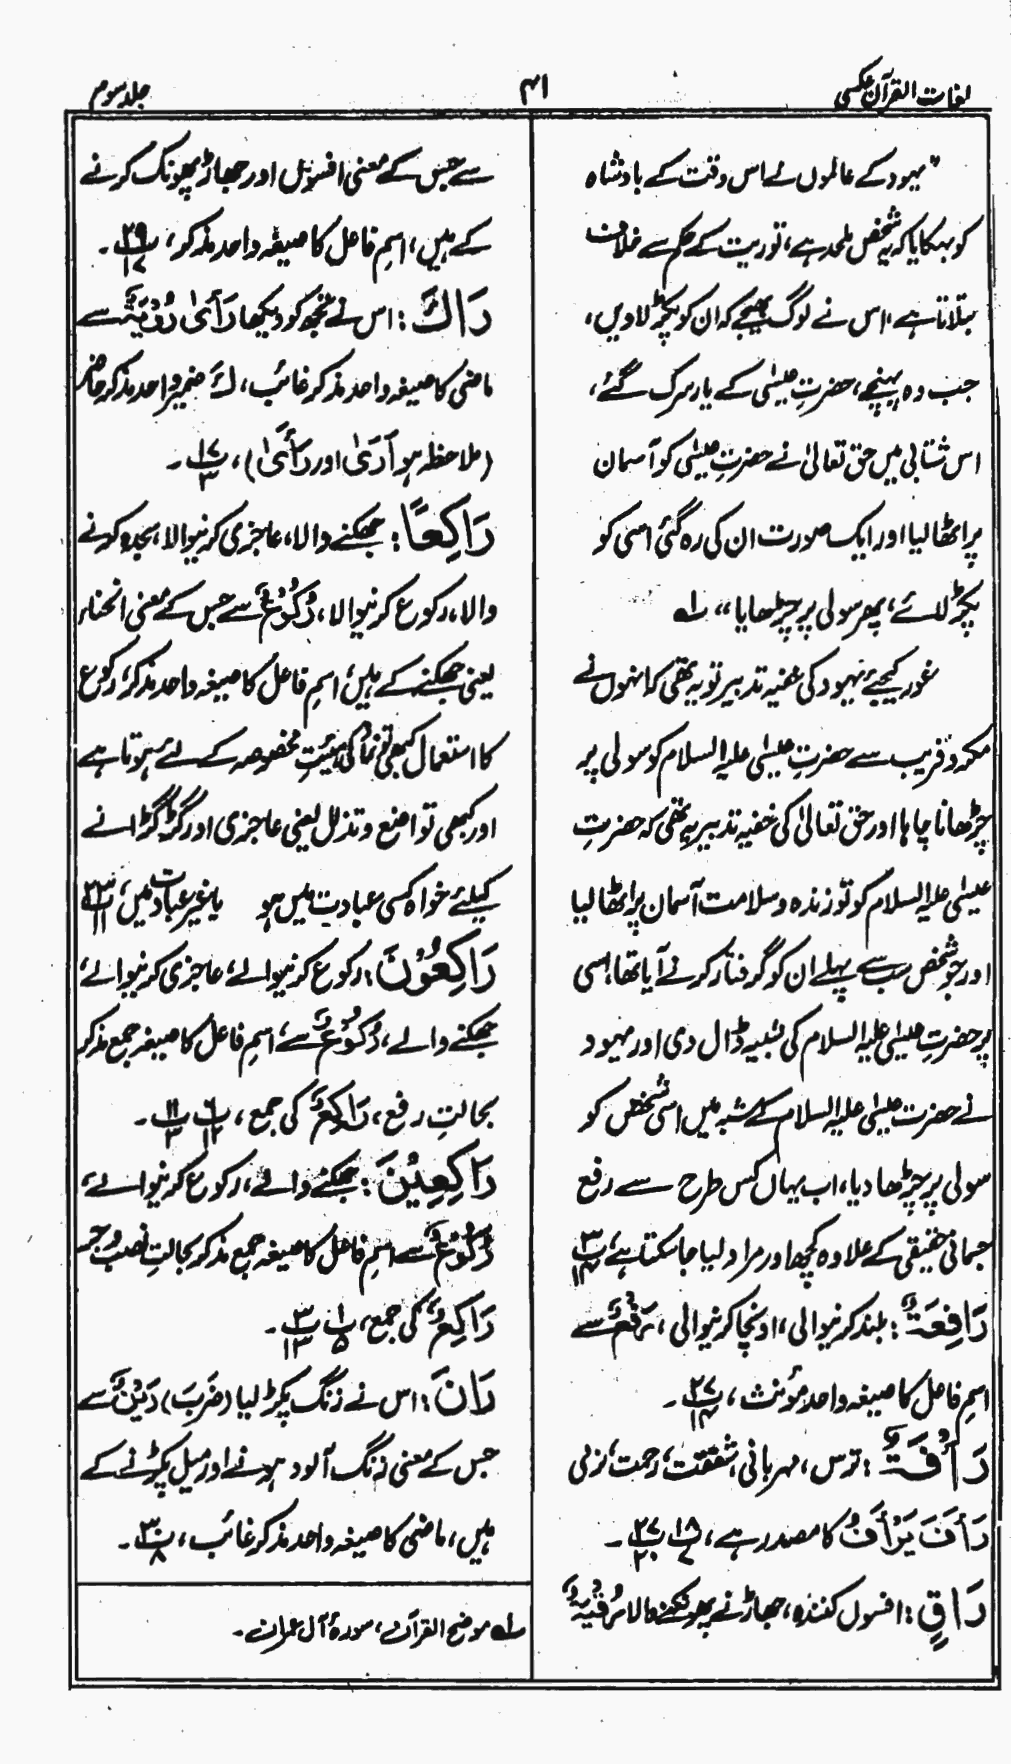 لغات القرآن عکسی
۴۱
جلد سوم
”یہود کے عالموں نے اس وقت کے بادشاہ
کو بہکایا کہ یہ شخص ملحد ہے، توریت کے حکم سے خلاف
بتلاتا ہے، اس نے لوگ بھیجے کہ ان کو پکڑ لاویں،
جب وہ پہنچے، حضرتِ عیسٰی کے یار سرک گئے،
اس شتابی میں حق تعالیٰ نے حضرتِ عیسٰی کو آسمان
پر اٹھا لیا اور ایک صورت ان کی رہ گئی اسی کو
پکڑ لائے، پھر سولی پر چڑھایا“ لہ
غور کیجئے یہود کی خفیہ تدبیر تو یہ تھی کہ انہوں نے
مکر و فریب سے حضرتِ عیسٰی علیہ السلام کو سولی پر
چڑھانا چاہا اور حق تعالیٰ کی خفیہ تدبیر یہ تھی کہ حضرتِ
عیسٰی علیہ السلام کو تو زندہ و سلامت آسمان پر اٹھا لیا
اور جو شخص سب سے پہلے ان کو گرفتار کرنے آیا تھا اسی
پر حضرتِ عیسٰی علیہ السلام کی شبیہ ڈال دی اور یہود
نے حضرت عیسٰی علیہ السلام کے شبہ میں اسی شخص کو
سولی پر چڑھا دیا، اب یہاں کس طرح سے رفع
جسمانی حقیقی کے علاوہ کچھ اور مراد لیا جا سکتا ہے، پ۳ ۱۴
رَافِعَۃٌ : بلند کرنیوالی، اونچا کرنیوالی، رَفْعٌ سے
اسمِ فاعل کا صیغہ واحد مؤنث، پ۲۷ ۱۴۔
رَأْفَۃٌ : ترس، مہربانی، شفقت، رحمت، نرمی
رَأَفَ یَرْأَفُ کا مصدر ہے، پ۱۸ ۷ پ۲۷ ۲۰۔
رَاقٍ : افسوں کنندہ، جھاڑنے پھونکنے والا رُقْیَۃٌ
سے جس کے معنی افسوں اور جھاڑ پھونک کرنے
کے ہیں، اسمِ فاعل کا صیغہ واحد مذکر، پ۲۹ ۱۷۔
رَاكَ : اس نے تجھ کو دیکھا رَأیٰ رُؤْیَۃٌ سے
ماضی کا صیغہ واحد مذکر غائب، كَ ضمیر واحد مذکر حاضر
(ملاحظہ ہو اَرَیٰ اور رَأیٰ)، پ۱۷ ۳۔
رَاكِعًا : جھکنے والا، عاجزی کرنیوالا، سجدہ کرنے
والا، رکوع کرنیوالا، رُكُوْعٌ سے جس کے معنی انحناء
یعنی جھکنے کے ہیں، اسمِ فاعل کا صیغہ واحد مذکر، رکوع
کا استعمال کبھی تو نماز کی ہیئتِ مخصوصہ کے لئے ہوتا ہے
اور کبھی تواضع و تذلل یعنی عاجزی اور گڑگڑانے
کیلئے خواہ کسی عبادت میں ہو یا غیر عبادت میں، پ۲۳ ۱۱
رَاكِعُوْنَ : رکوع کرنیوالے، عاجزی کرنیوالے،
جھکنے والے، رُكُوْعٌ سے، اسمِ فاعل کا صیغہ جمع مذکر
بحالتِ رفع، رَاكِعٌ کی جمع، پ۶ ۱۲ پ۱۱ ۳۔
رَاكِعِيْنَ : جھکنے والے، رکوع کرنیوالے،
رُكُوْعٌ سے اسمِ فاعل کا صیغہ جمع مذکر بحالتِ نصب و جر
رَاكِعٌ کی جمع، پ۱ ۵ پ۳ ۱۳۔
رَانَ : اس نے زنگ پکڑ لیا (ضَرَبَ) رَیْنٌ سے
جس کے معنی زنگ آلود ہونے اور میل پکڑنے کے
ہیں، ماضی کا صیغہ واحد مذکر غائب، پ۳۰ ۸۔
لہ موضح القرآن، سورۂ آل عمران۔